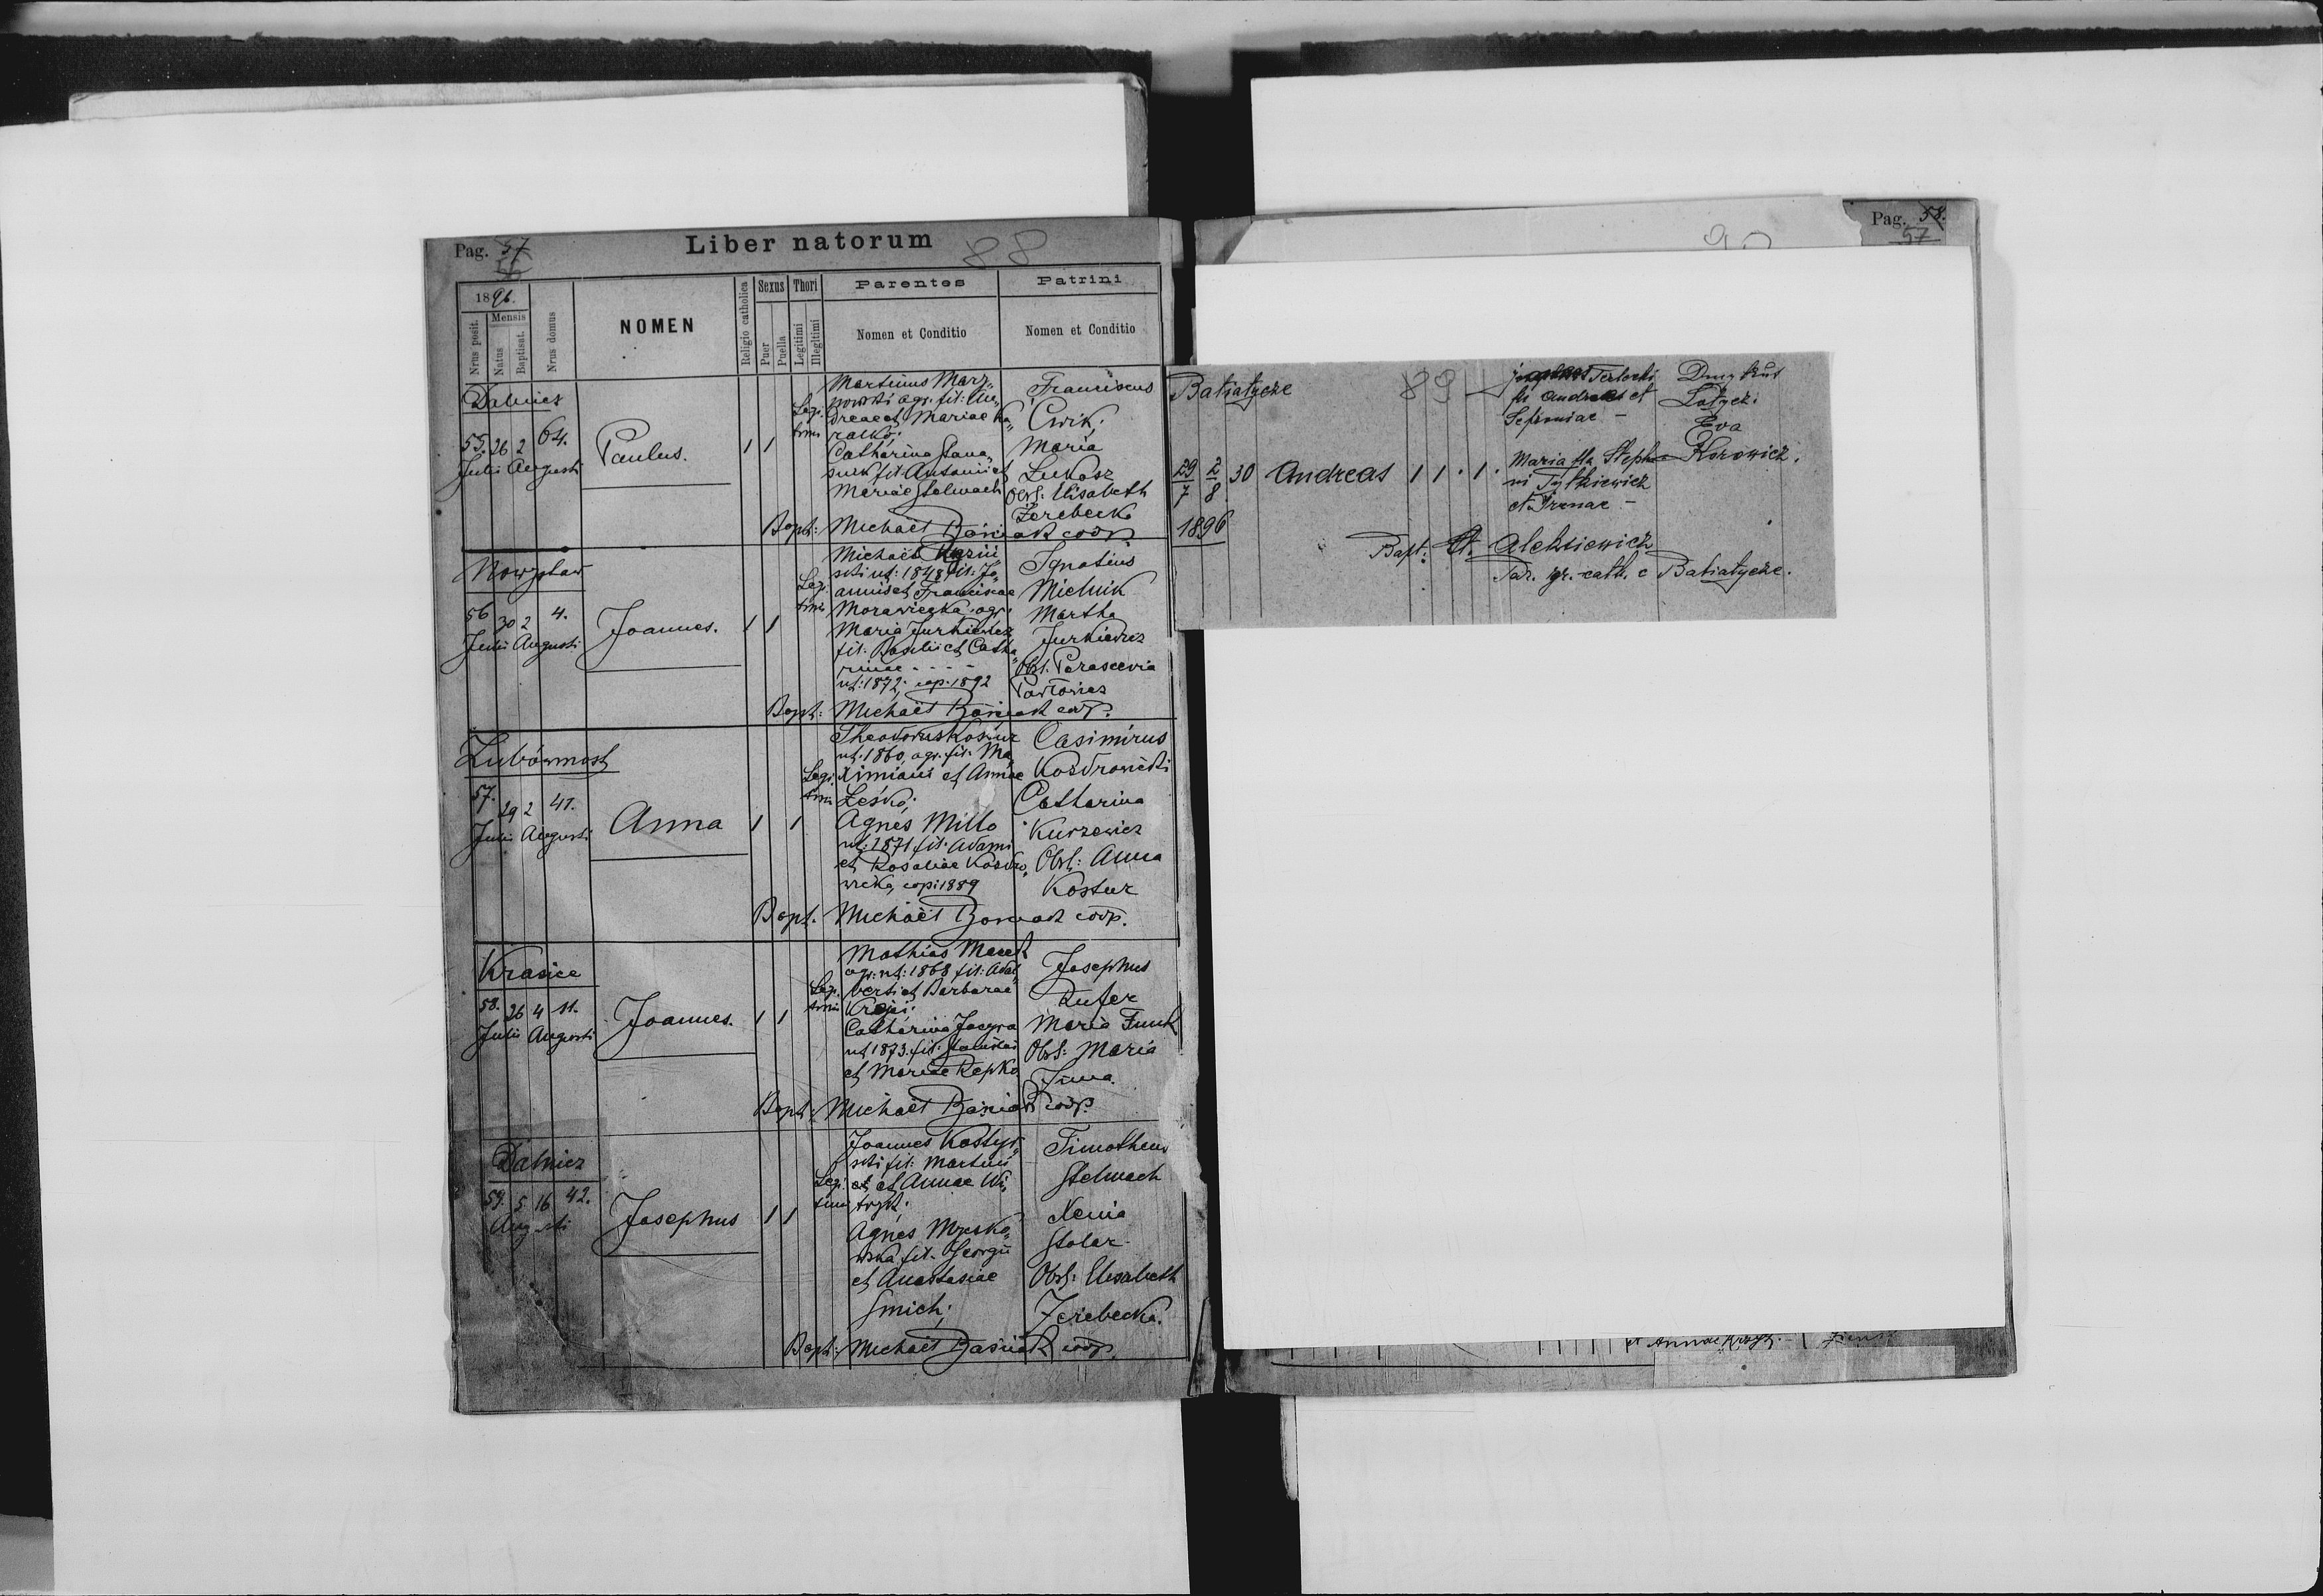 Pag. 57
56
Liber natorum
88
1896.
Nrus posit.
Mensis
Natus
Baptisat.
Nrus domus
NOMEN
Religio catholica
Sexus
Puer
Puella
Thori
Legitimi
Illegitimi
Parentes
Nomen et Conditio
Patrini
Nomen et Conditio
Dalnicz
55. 26 2 64.
Julii Augusti
Paulus.
1 1
Legi
timi
Martinus Marz„
nowski agr. fil: An„
dreae et Mariae Ka„
ralko;
Catharina
fil: Antonii et
Mariae Stelmach
Franciscus
Cwik;
Maria
Lukasz
Obst: Elisabeth
Żerebecka
Bapt: Michaël Baśniak coop.
56 30 2 4.
Julii Augusti
Joannes.
1 1
Legi
timi
Michaël
ski nt: 1848 fil: Jo„
annis et Franciscae
Morawiecka agr.
Maria Jurkiewicz
fil: Basilii et Catha„
rinae - - - -
nt: 1872; cop. 1892
Ignatius
Mielnik
Martha
Jurkiewicz
Obst. Parascevia
Bapt: Michaël Baśniak coop.
Żubówmost
57. 29 2 41.
Julii Augusti
Anna
1 1
Legi
timi
Theodorus Kostur
nt. 1860, agr. fil: Ma„
ximiani et Annae
Leśko;
Agnes Millo
nt: 1871 fil: Adami
et Rosaliae Kozdro„
wicka, cop: 1889
Casimirus
Kozdrowicki
Catharina
Kurzewicz
Obst: Anna
Kostur
Bapt. Michaël Baśniak coop.
Krasice
58. 26 4 11.
Julii Augusti
Joannes.
1 1
Legi
timi
Mathias Marek
agr: nt: 1868 fil: Adal„
berti et Barbarae
Catharina
nt 1873. fil:
et Mariae Repka
Josephus
Rufer
Maria Funk
Obst: Maria
Bapt: Michaël Baśniak coop.
Dalnicz
59. 5 16 42.
Augusti
Josephus
1 1
Legi
timi
Joannes Kostyr„
ski fil: Martini
et Annae Wi„
tryk;
Agnes
fil. Georgii
et Anastasiae
Smich;
Timotheus
Stelmach
Xenia
Stolar
Obst: Elisabeth
Żerebecka.
Bapt: Michaël Baśniak coop.
Pag. 58.
57
Batiatycze
89
29/7 2/8 30 Andreas 1 1 . 1 .
1896
Terlecki
fil Andreae et
Sefroniae -
Maria fila Stepha
ni Tytkiewicz
et Irenae -
Dmytrus
Lotycz.
Eva
Korowicz.
Bapt: A. Aleksiewicz
Par. gr.-cath. e Batiatycze.
et Annae